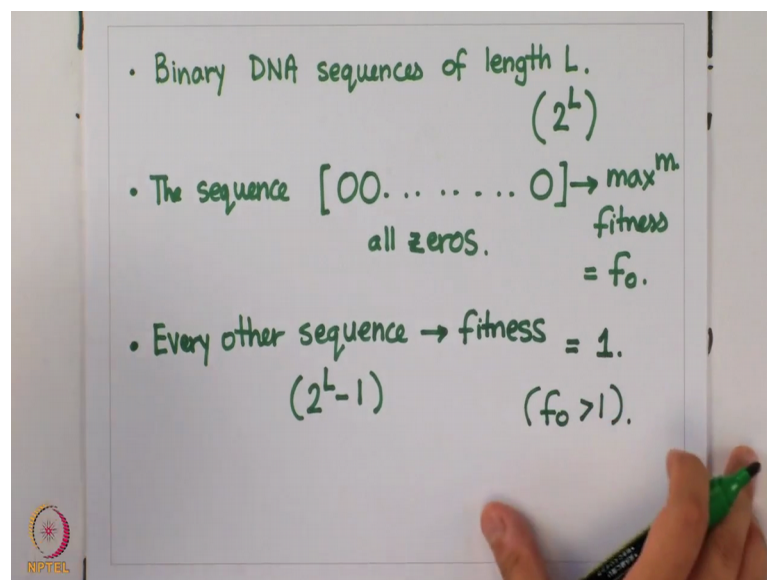 • Binary DNA sequences of length L.
(2^L)
• The sequence [00. . . . . . . . 0] → max^m.
fitness
all zeros.
= f₀.
• Every other sequence → fitness = 1.
(2^L-1) (f₀ >1).
NPTEL